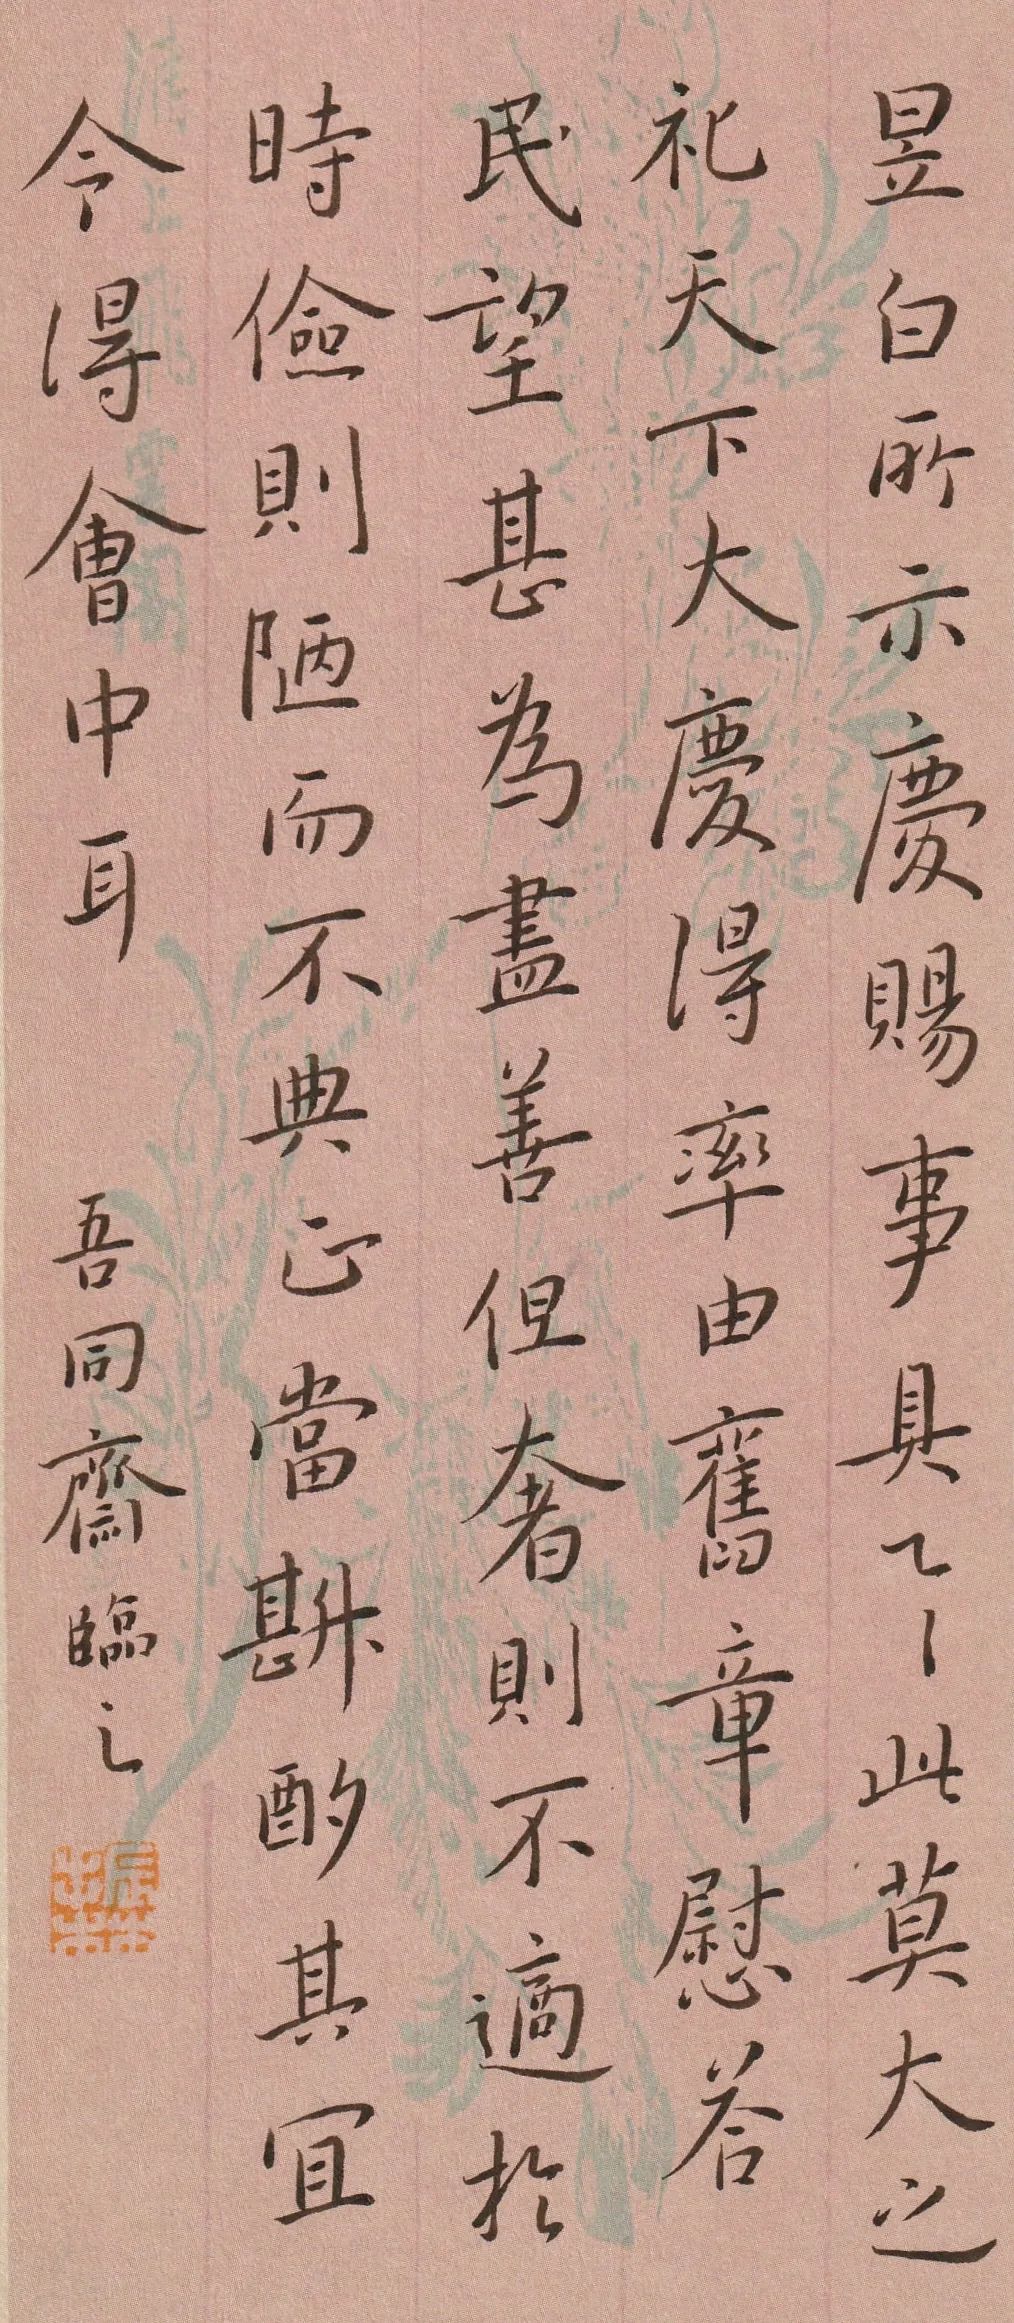 昱白所示慶賜事具てㄧ此莫大之
礼天下大慶得率由舊章慰荅
民望甚為盡善但奢則不適於
時儉則陋而不典正當斟酌其宜
今得會中耳 吾同齋臨之